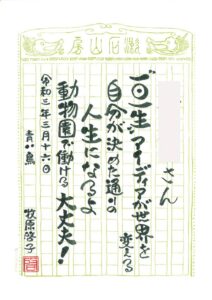 漱石山房
さん
アイディアが世界を
変える
自分が決めた通りの
人生になるよ
動物園で働ける大丈夫!
令和三年三月十六日
青い鳥
牧原啓子